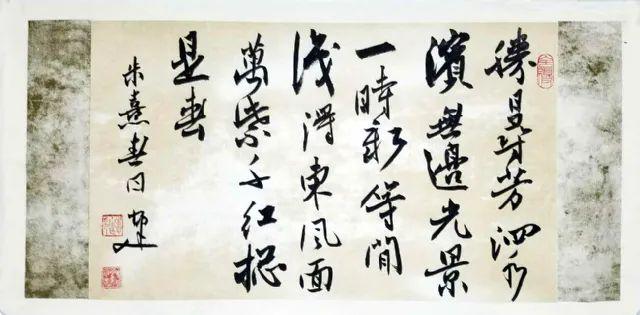 勝日尋芳泗水
濱無邊光景
一時新等閒
識得東風面
萬紫千紅總
是春
朱熹春日